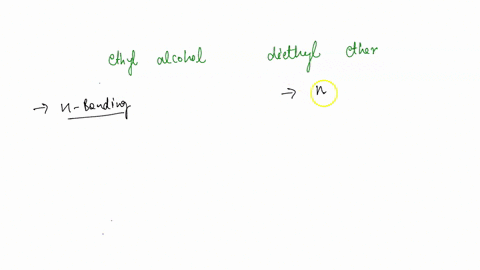 ethyl alcohol diethyl ether
→ H-Bonding → H